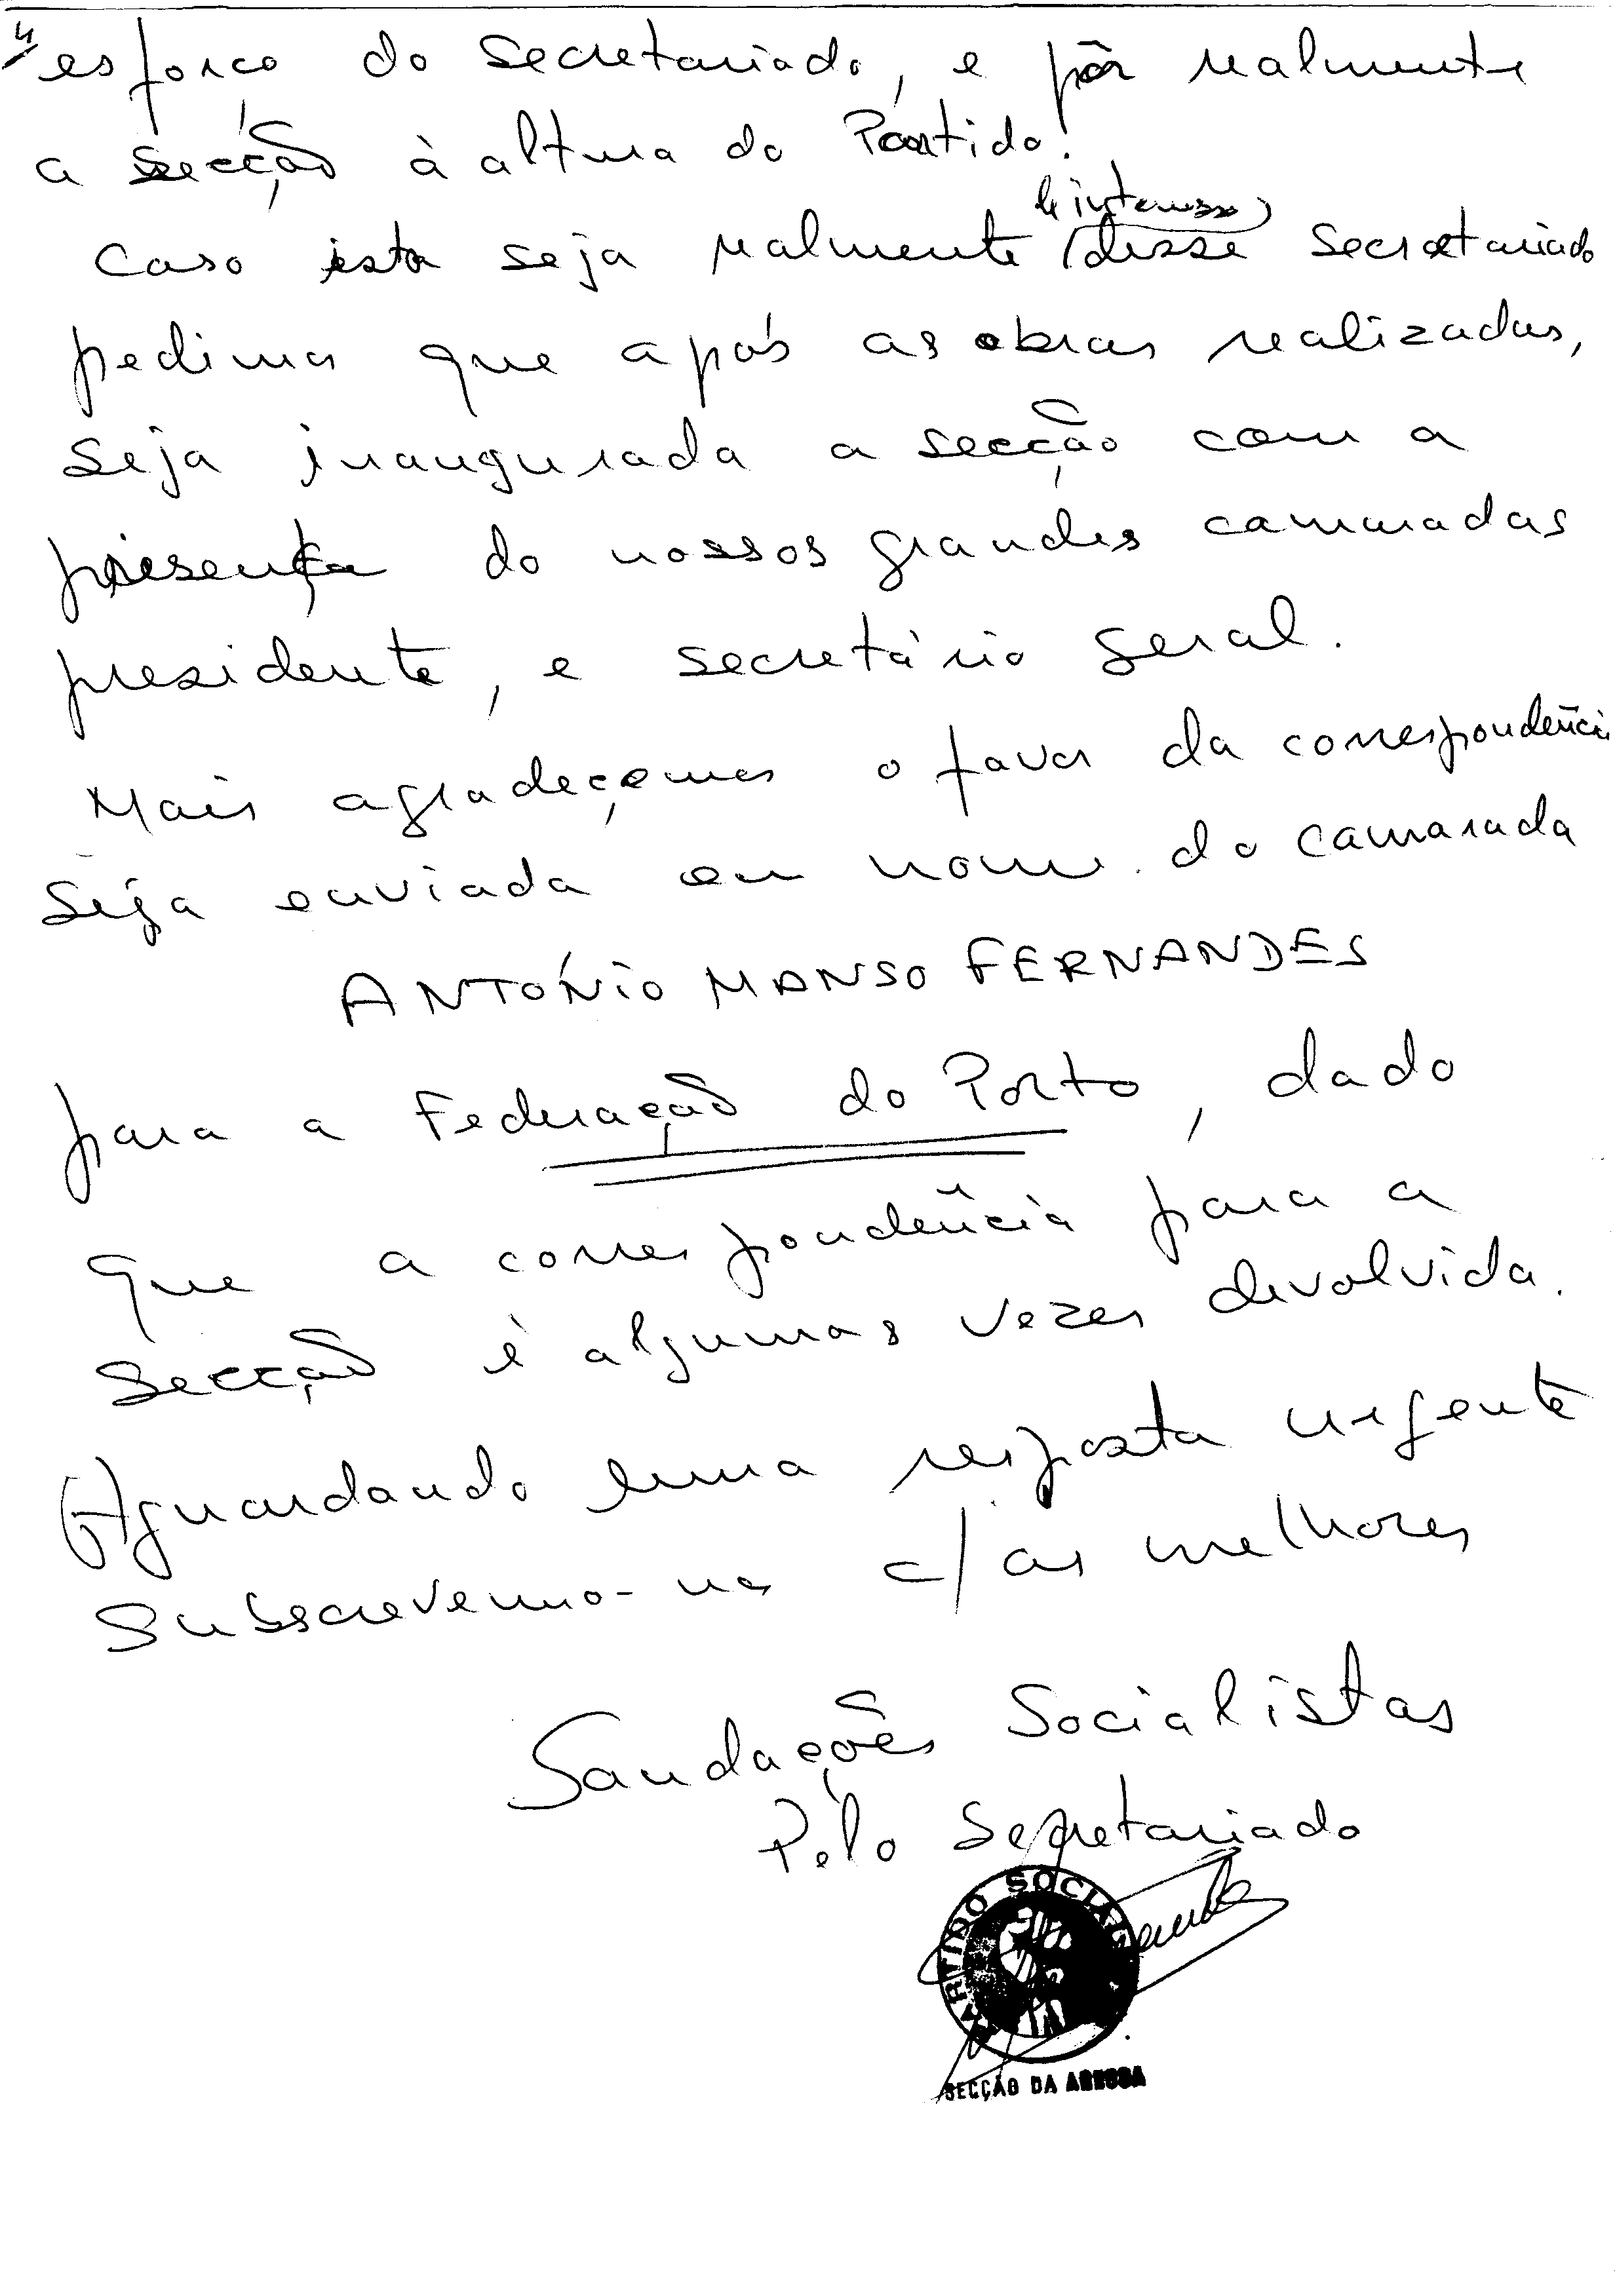 4/
esforço do secretariado, e pôr realmente
a secção à altura do Partido.
de interesse
Caso isto seja realmente desse secretariado
pedimos que após as obras realizadas,
seja inaugurada a secção com a
presença do nossos grandes camaradas
presidente, e secretário geral.
Mais agradeçemos o favor da correspondência
seja enviada em nome do camarada
ANTÓNIO MANSO FERNANDES
para a Federação do Porto, dado
que a correspondência para a
secção é algumas vezes devolvida.
Aguardando uma resposta urgente
subscrevemo-nos c/ as melhores
Saudações Socialistas
Pelo Secretariado
PARTIDO SOCIALISTA
SECÇÃO DA